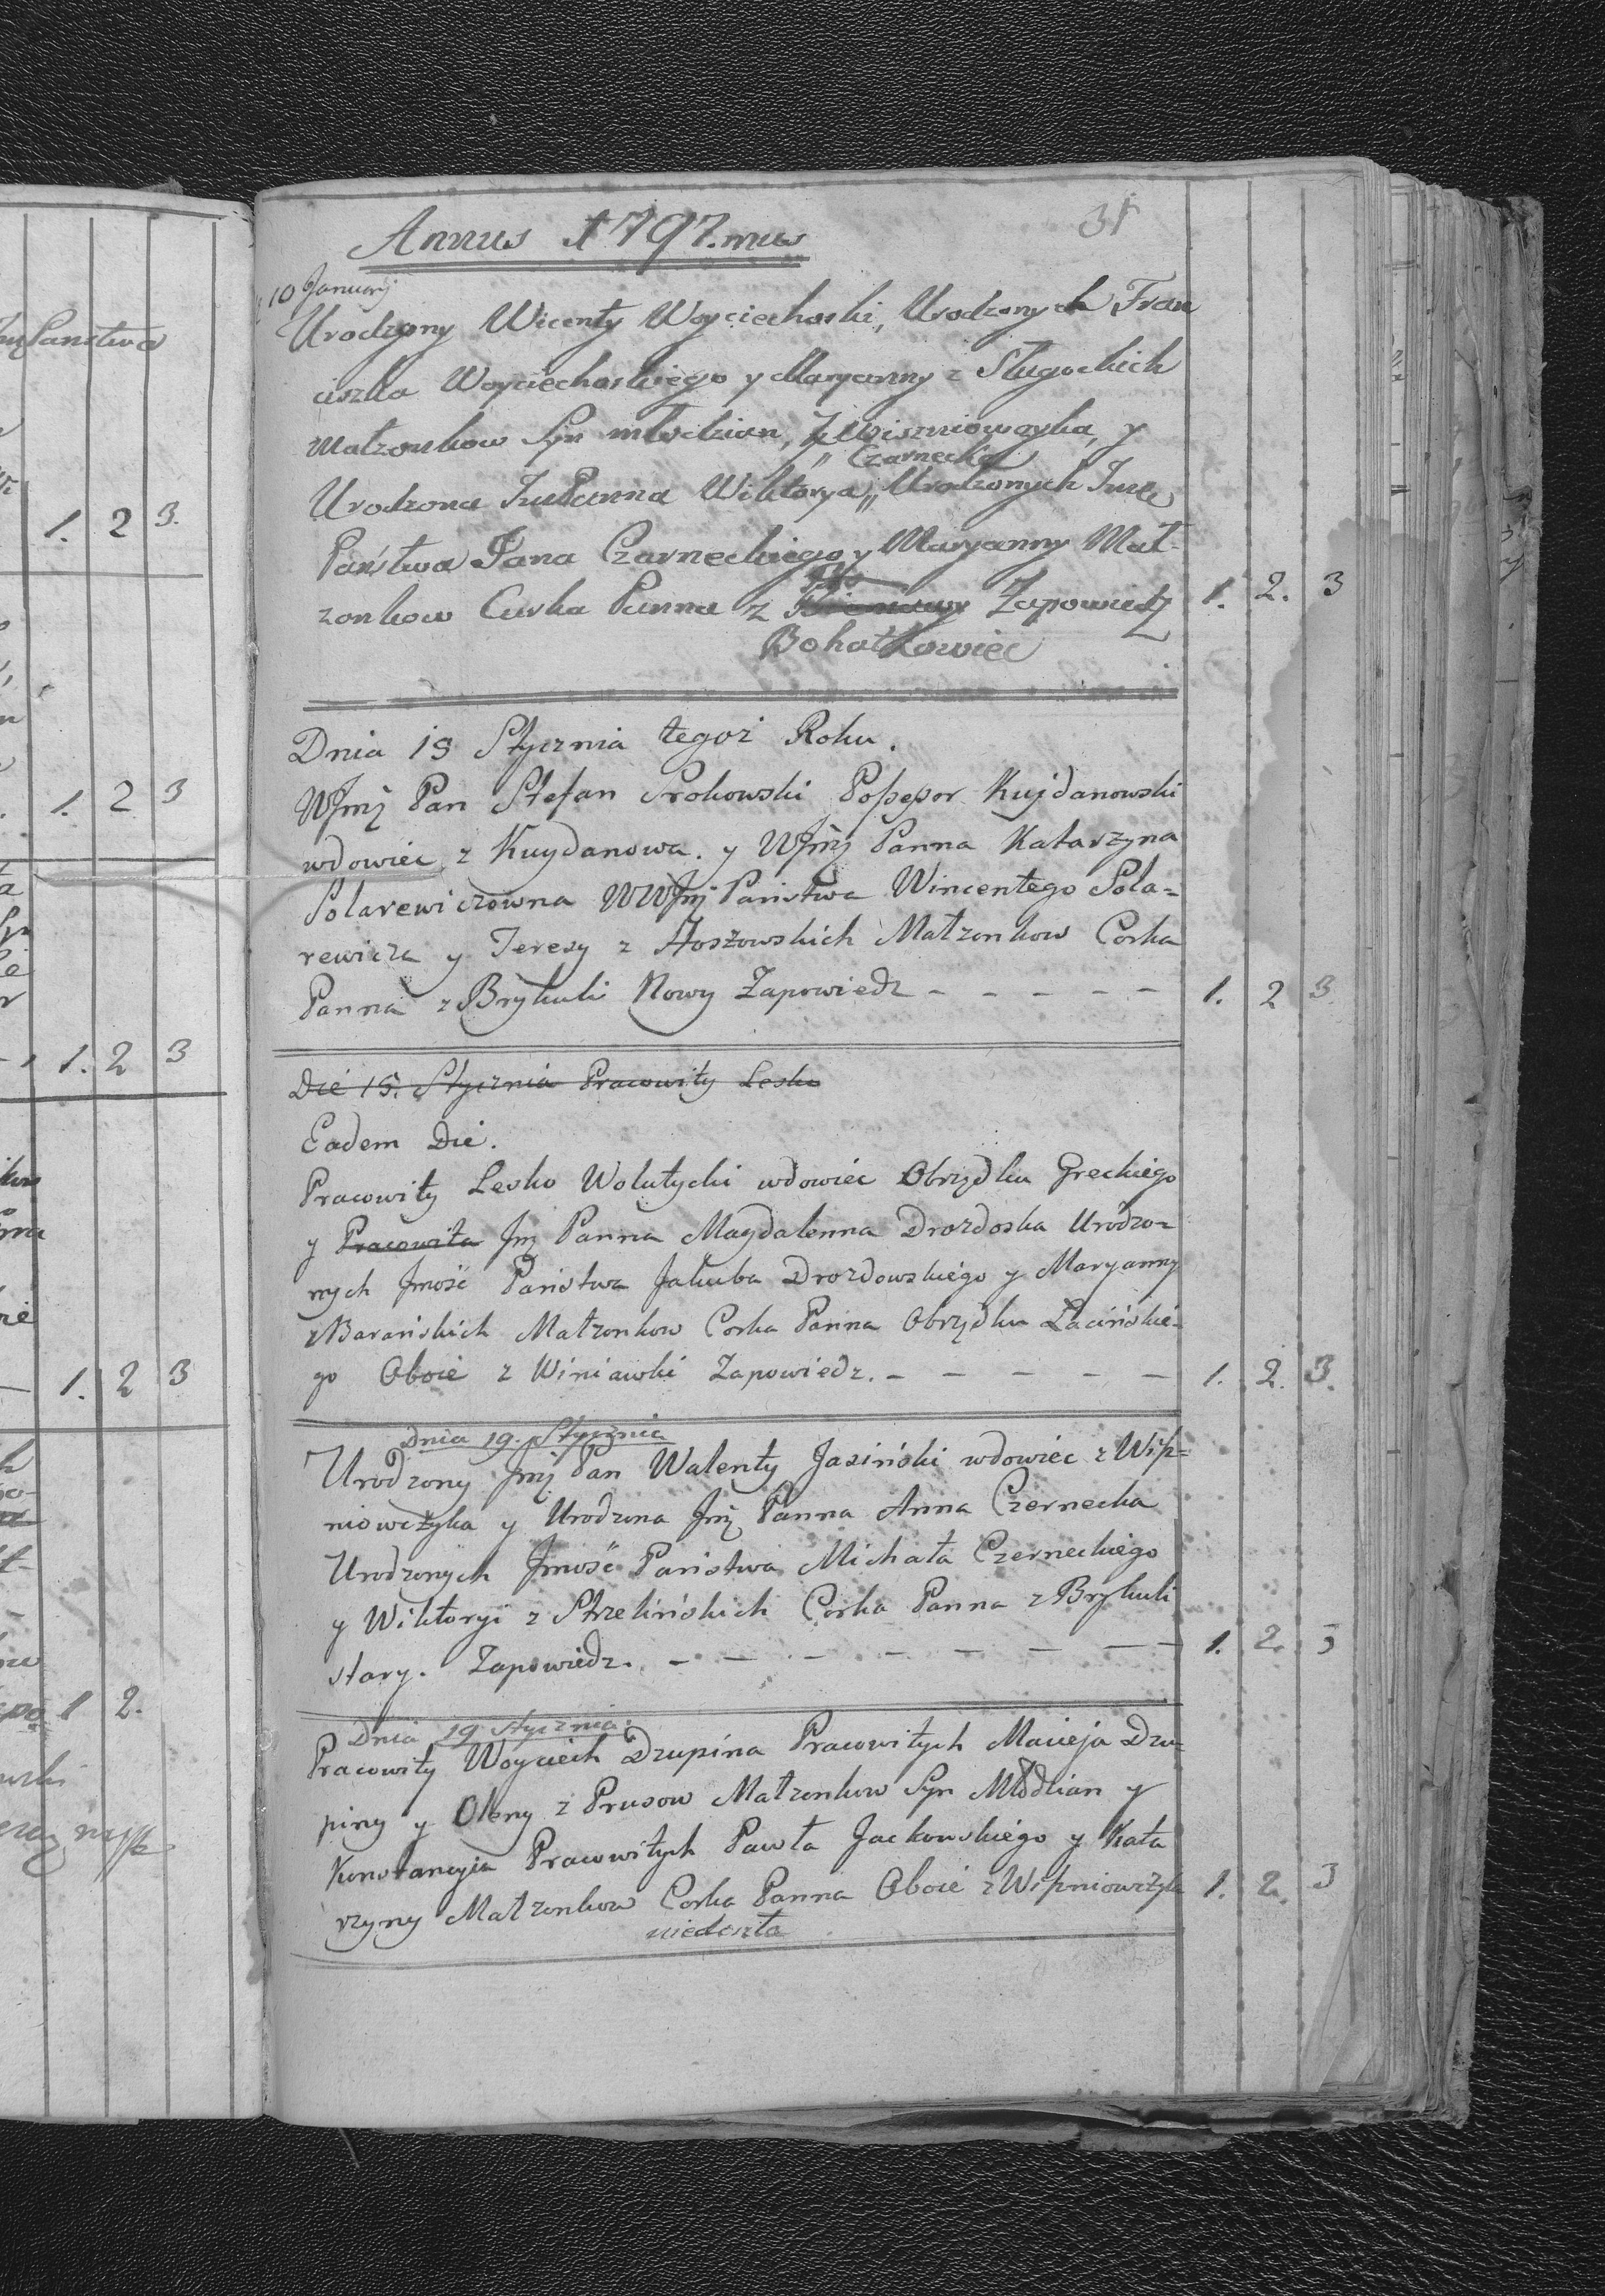 Państwa
1. 2 3.
1. 2 3
1. 2 3
1. 2 3
1 2.
31
Annus 1797.mus
10 Januarij
Urodzony Wicenty Woyciechoski, Urodzonych Fran
ciszka Woyciechoskiego y Maryanny z Długockich
Małzonkow Syn młodzian, z Wiszniowczyka, y
„ Czarnecka
Urodzona Im Panna Wiktorya „ Urodzonych Imc
Państwa Jana Czarneckiego y Maryanny Mał-
zonkow Curka Panna z Zapowiedz 1. 2. 3
Bohatkowiec
Dnia 15 Stycznia tegoż Roku.
WJmć Pan Stefan Prokowski Possessor Kujdanowski
wdowiec z Kuydanowa. y WJmć Panna Katarzyna
Polarewiczowna WWJmć Państwa Wincentego Pola=
rewicza y Teresy z Hoszowskich Małzonkow Corka
Panna z Brykuli Nowy Zapowiedz - - - - - 1. 2 3.
Die 15. Stycznia Pracowity Lesko
Eadem Die.
Pracowity Lesko Wolutycki wdowiec Obrządku Greckiego
y Pracowita Jmć Panna Magdalenna Drozdoska Urodzo=
nych Jmość Państwa Jakuba Drozdowskiego y Maryanny
z Barańskich Małzonkow Corka Panna Obrządku Łacińskie-
go Oboie z Winiawki Zapowiedz. - - - - - 1. 2. 3.
Dnia 19. Stycznia
Urodzony Jmć Pan Walenty Jasiński wdowiec z Wiss=
niowczyka y Urodzona Jmć Panna Anna Czernecka
Urodzonych Jmość Państwa Michała Czerneckiego
y Wiktoryi z Strzelińskich Corka Panna z Brykuli
stary. Zapowiedz. - - - - - - - 1. 2. 3
Dnia 19 stycznia.
Pracowity Woyciech Dzupina Pracowitych Macieja Dzu-
piny y Oleny z Prusow Małzonkow Syn Młodzian y
Konstancyia Pracowitych Pawła Jackowskiego y Kata
rzyny Małzonkow Corka Panna Oboie z Wissniowczyk 1. 2. 3
niedoszła